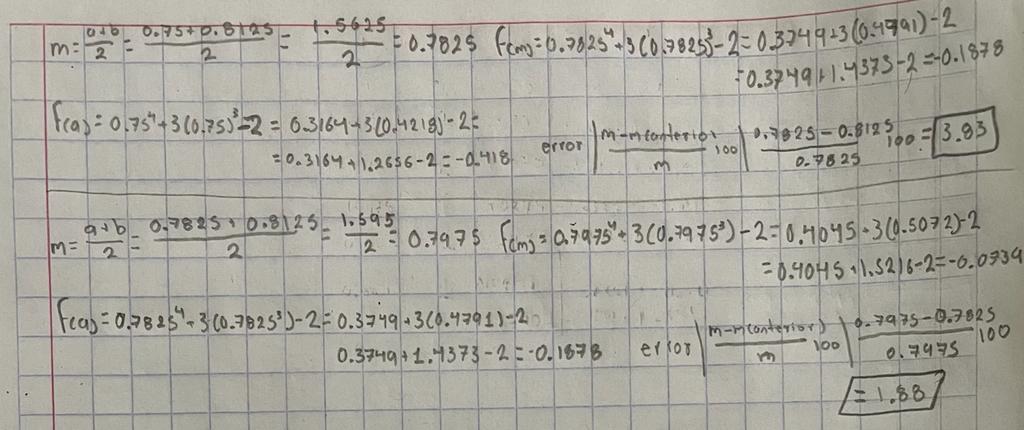 m = (a+b)/2 = (0.75+0.8125)/2 = 1.5625/2 = 0.7825 f(m) = 0.7825⁴+3(0.7825)³-2 = 0.3749+3(0.4791)-2
= 0.3749+1.4373-2 = -0.1878
f(a) = 0.75⁴+3(0.75)³-2 = 0.3164+3(0.4218)-2 =
= 0.3164+1.2656-2 = -0.418 error |(m-m(anterior))/m 100| (0.7825-0.8125)/0.7825 100 = 3.83
m = (a+b)/2 = (0.7825+0.8125)/2 = 1.595/2 = 0.7975 f(m) = 0.7975⁴+3(0.7975³)-2 = 0.4045+3(0.5072)-2
= 0.4045+1.5216-2 = -0.0739
f(a) = 0.7825⁴+3(0.7825³)-2 = 0.3749+3(0.4791)-2
0.3749+1.4373-2 = -0.1878 error |(m-m(anterior))/m 100| (0.7975-0.7825)/0.7975 100
= 1.88